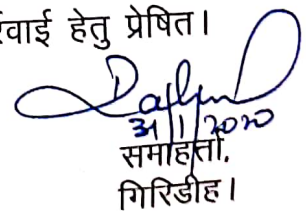 वाई हेतु प्रेषित।
31/1/2020
समाहर्ता,
गिरिडीह।